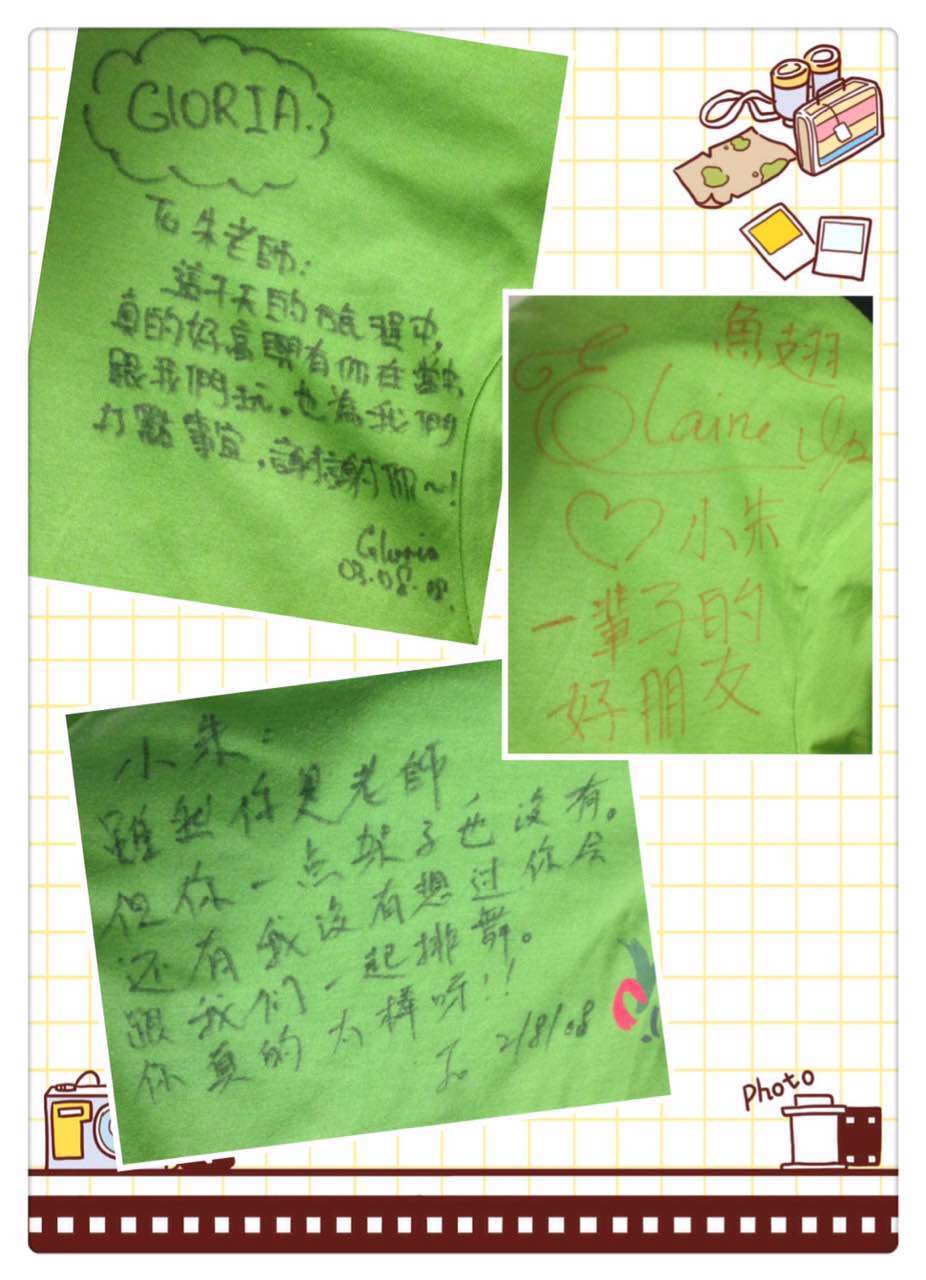 GLORIA.
To 朱老師:
這千天的旅程中,
真的好高興有你在
跟我們玩,也為我們
打點事宜,謝你~!
Gloria
03.08.08.
魚翅
Elaine
♡小朱
一輩子的
好朋友
小朱:
雖然你是老師,
但你一点架子也没有。
还有我没有想过你会
跟我们一起排舞。
你真的太棒呀!!
2/8/08
Photo